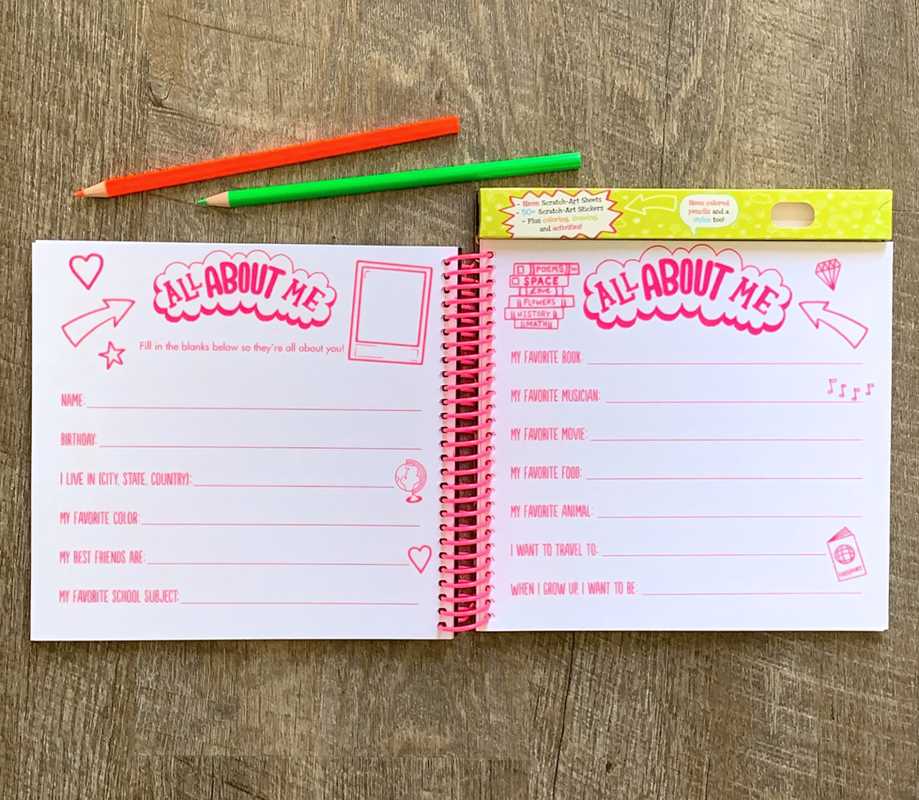 - Neon Scratch-Art Sheets
- 50+ Scratch-Art Stickers
- Plus coloring, drawing,
and activities!
Neon colored
pencils and a
stylus too!
ALL ABOUT ME
Fill in the blanks below so they're all about you!
NAME:
BIRTHDAY:
I LIVE IN (CITY, STATE, COUNTRY):
MY FAVORITE COLOR:
MY BEST FRIENDS ARE:
MY FAVORITE SCHOOL SUBJECT:
POEMS
SPACE
Love
FLOWERS
HISTORY
MATH
ALL ABOUT ME
MY FAVORITE BOOK:
MY FAVORITE MUSICIAN:
MY FAVORITE MOVIE:
MY FAVORITE FOOD:
MY FAVORITE ANIMAL:
I WANT TO TRAVEL TO:
PASSPORT
WHEN I GROW UP, I WANT TO BE: